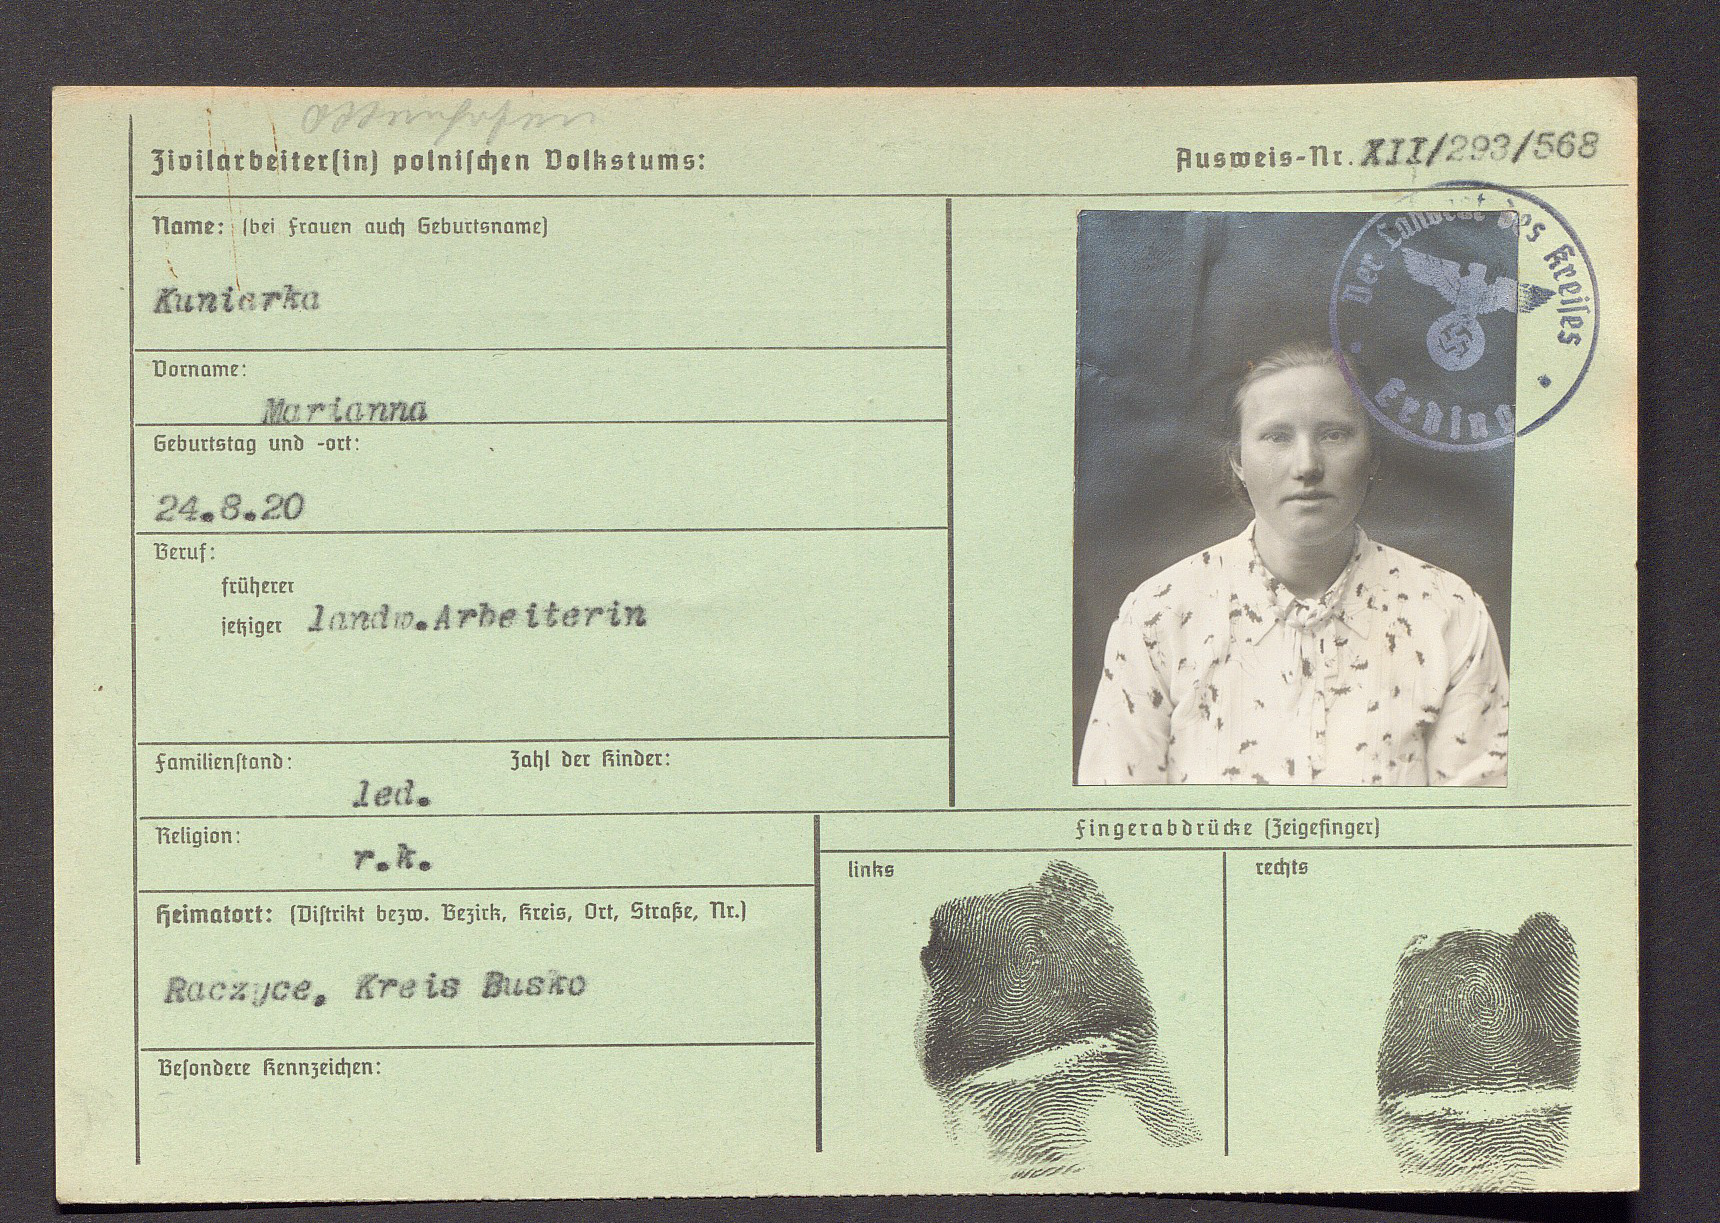 Zivilarbeiter(in) polnischen Volkstums:
Ausweis-Nr. XII/293/568
Name: (bei Frauen auch Geburtsname)
Kuniarka
Vorname:
Marianna
Geburtstag und -ort:
24.8.20
Beruf:
früherer
jetziger landw.Arbeiterin
Familienstand: Zahl der Kinder:
led.
Religion:
r.k.
Heimatort: (Distrikt bezw. Bezirk, Kreis, Ort, Straße, Nr.)
Raczyce, Kreis Busko
Besondere Kennzeichen:
Der Landrat des Kreises
Erding
Fingerabdrücke (Zeigefinger)
links
rechts